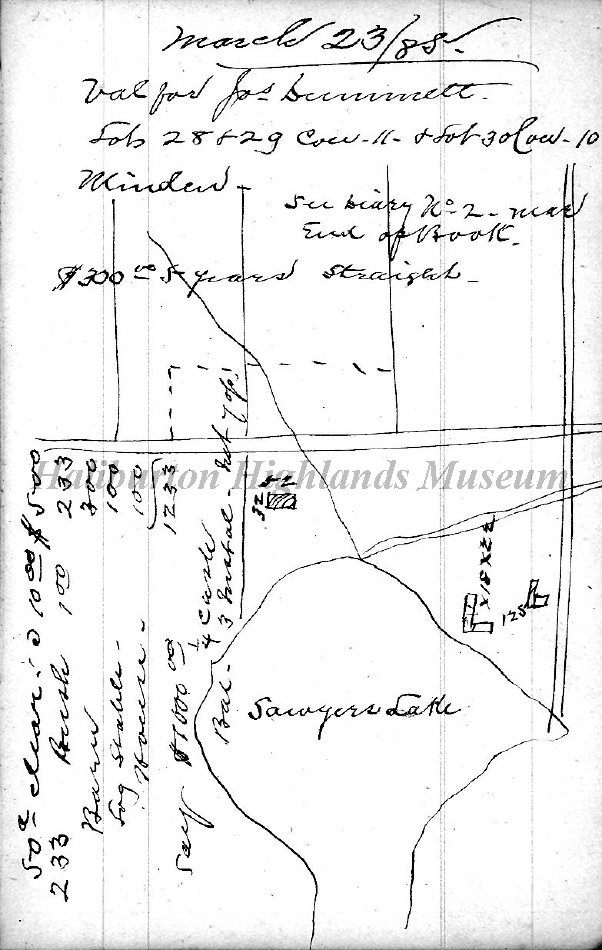 March 23/85.
Val for Jos Dummett.
Lots 28 & 29 Con. 11. & Lot 30 Con. 10
Minden.
See Diary No. 2. near
End of Book.
$300 00 5 years straight.
Haliburton Highlands Museum
32 52
18 X 22
125
Sawyers Lake
50 a clear. @ 10 00 $500
233 Bush 1 00 233
Barn 300
Log Stable. 100
House. 100
1233
Say $1000 00
Bal. 1/4 Cash
3